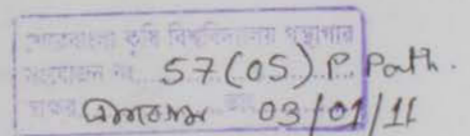 শেরেবাংলা কৃষি বিশ্ববিদ্যালয় গ্রন্থাগার
সংযোজন নং 57(05) P. Path.
স্বাক্ষর 03/01/11